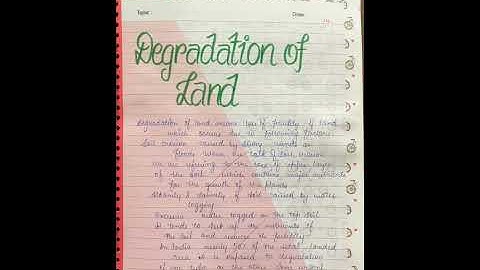 Topic:
Date:
Degradation of
Land
Degradation of land means loss of fertility of land
which occurs due to following factors.
Soil erosion caused by strong winds or
floods. When we talk of soil erosion
we are referring to the loss of upper layer
of the soil which contains major nutrients
for the growth of the plants
Salinity of soil caused by water
logging
Excessive water logged on the top soil
tends to the nutrients of
the soil and reduces its fertility
In India nearly 50% of the total landed
area is exposed to degradation
of one type or the other